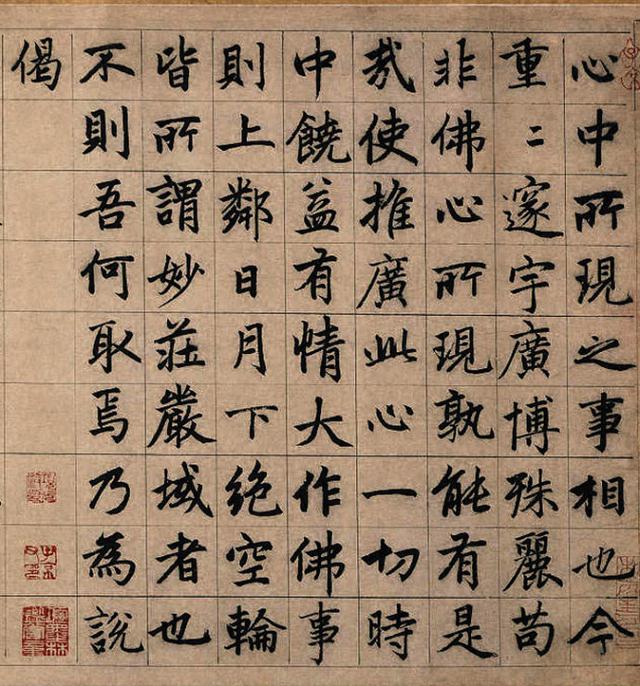 心中所現之事相也今
重二邃宇廣博殊麗苟
非佛心所現孰能有是
哉使推廣此心一切時
中饒益有情大作佛事
則上鄰日月下絕空輪
皆所謂妙莊嚴域者也
不則吾何取焉乃為說
偈